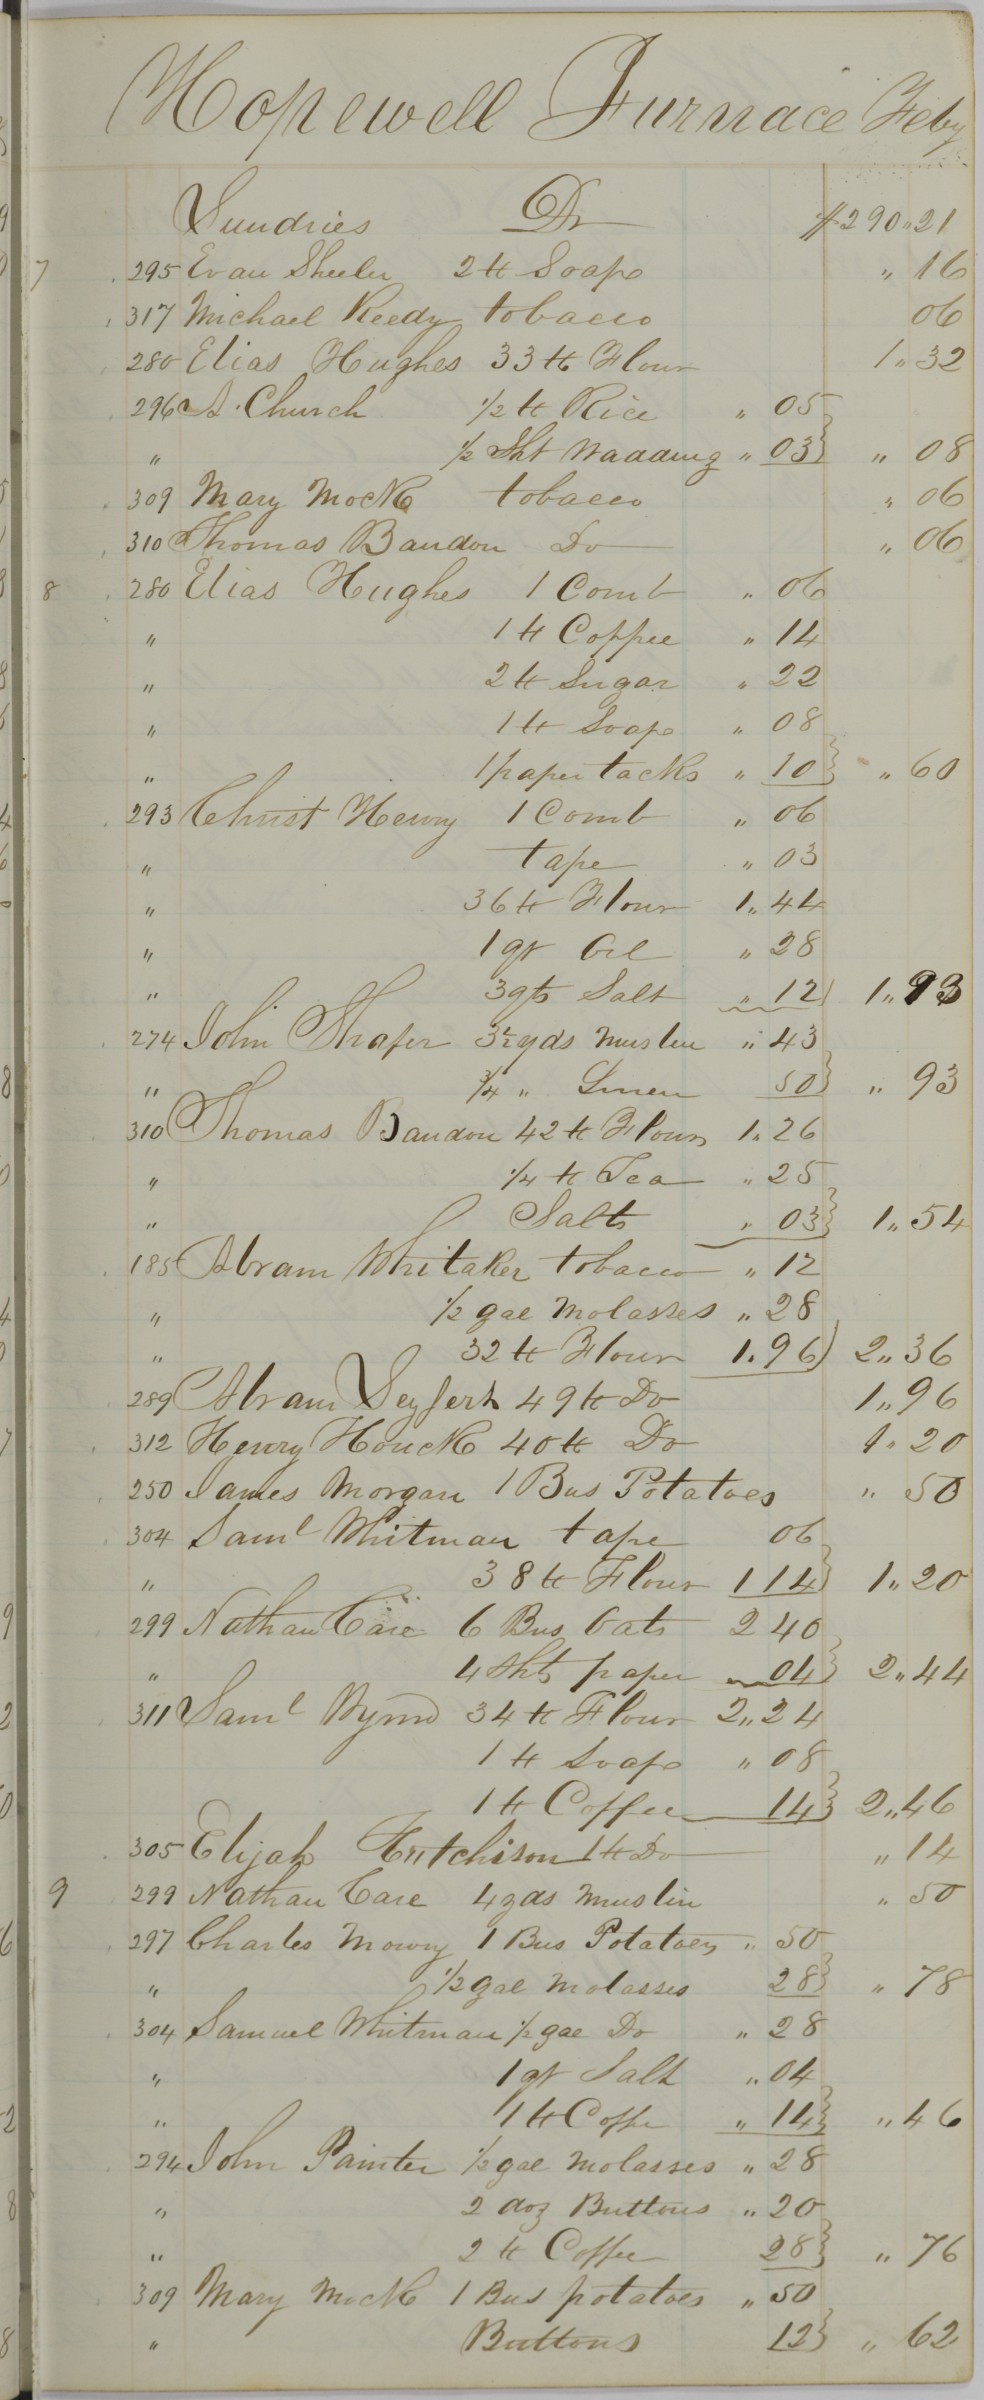 Hopewell Furnace Feby
Sundries Dr $290"21
7 295 Evan Sheeler 2 lb Soap " 16
317 Michael Reedy tobacco 06
280 Elias Hughes 33 lb Flour 1"32
296 A. Church ½ lb Rice " 05
" ½ Sht Wadding " 03 } " 08
309 Mary Mock tobacco " 06
310 Thomas Baudon Do " 06
8 280 Elias Hughes 1 Comb " 06
" 1 lb Coffee " 14
" 2 lb Sugar " 22
" 1 lb Soap " 08
" 1 paper tacks " 10 } " 60
293 Christ Henry 1 Comb " 06
" tape " 03
" 36 lb Flour 1"44
" 1 qt Oil " 28
" 3 qts Salt " 12 ) 1"93
274 John Shafer 3½ yds Muslin " 43
" ¾ " Linen 50 } " 93
310 Thomas Baudon 42 lb Flour 1"26
" ¼ lb Tea " 25
" Salts " 03 } 1"54
185 Abram Whitaker tobacco " 12
" ½ gal Molasses " 28
" 32 lb Flour 1.96 ) 2"36
289 Abram Seyfert 49 lb Do 1"96
312 Henry Houck 40 lb Do 1"20
250 James Morgan 1 Bus Potatoes " 50
304 Saml Whitman tape 06
" 38 lb Flour 1 14 } 1"20
299 Nathan Care 6 Bus Oats 2 40
" 4 Shts paper 04 } 2"44
311 Saml Byrd 34 lb Flour 2"24
1 lb Soap " 08
1 lb Coffee 14 } 2"46
305 Elijah Hutchison 1 lb Do " 14
9 299 Nathan Care 4 yds Muslin " 50
297 Charles Mowry 1 Bus Potatoes " 50
" ½ gal Molasses 28 } " 78
304 Samuel Whitman ½ gal Do " 28
" 1 qt Salt " 04
" 1 lb Coffe " 14 } " 46
294 John Painter ½ gal Molasses " 28
" 2 doz Buttons " 20
" 2 lb Coffee 28 } " 76
309 Mary Mock 1 Bus potatoes " 50
" Buttons 12 } " 62